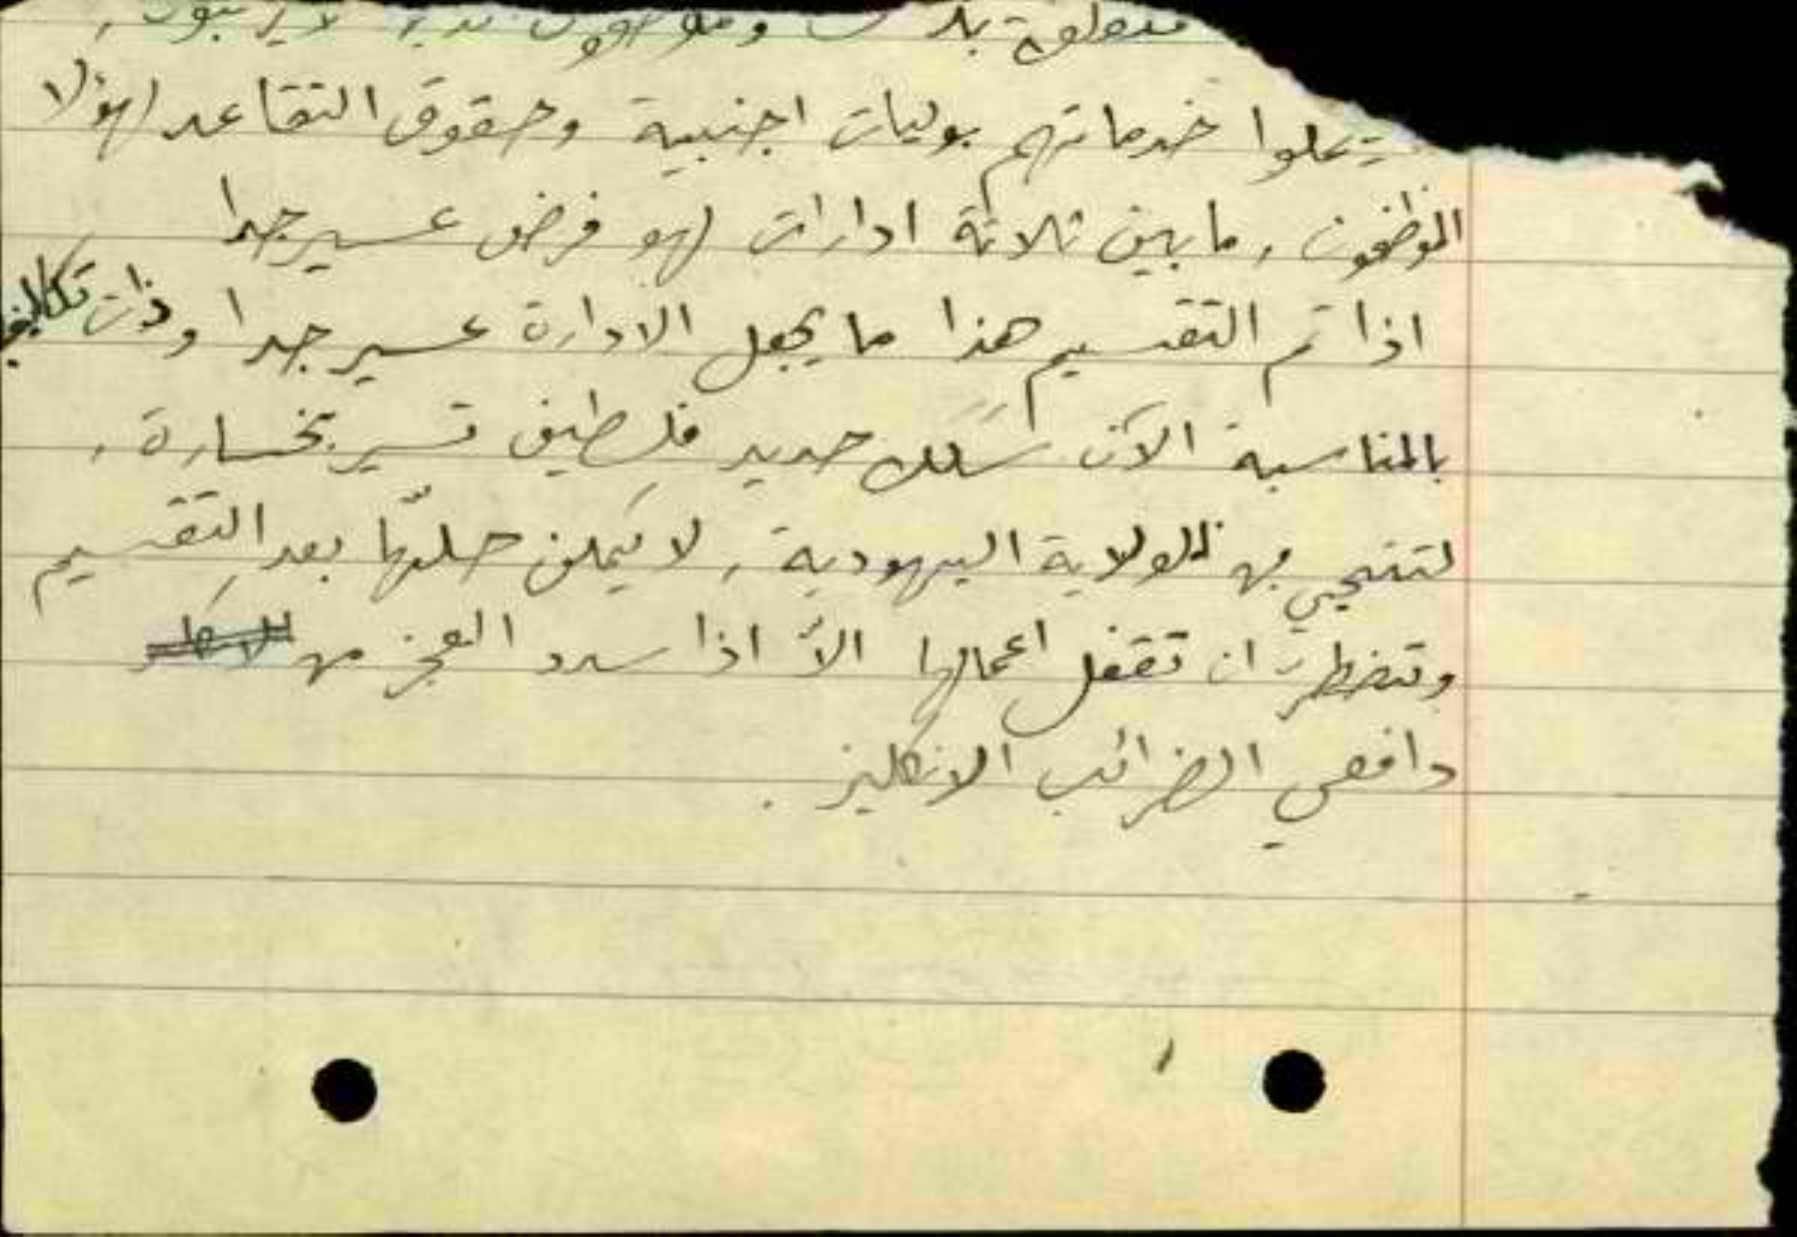 يكملوا خدماتهم بوليات اجنبية وحقوق التقاعد لهؤلا
الموظفون، ما بين ثلاثة ادارات لهو فرض عسير جدا
اذا تم التقسيم هذا ما يجعل الادارة عسير جدا وذات تكاليف
بالمناسبة الآن سكك حديد فلسطين تسير بخسارة،
بها للولاية اليهودية، لا يمكن حلّها بعد التقسيم
وتضطرّ ان تقفل اعمالها الاّ اذا سدد العجز من
دافعي الضرائب الانكليز.